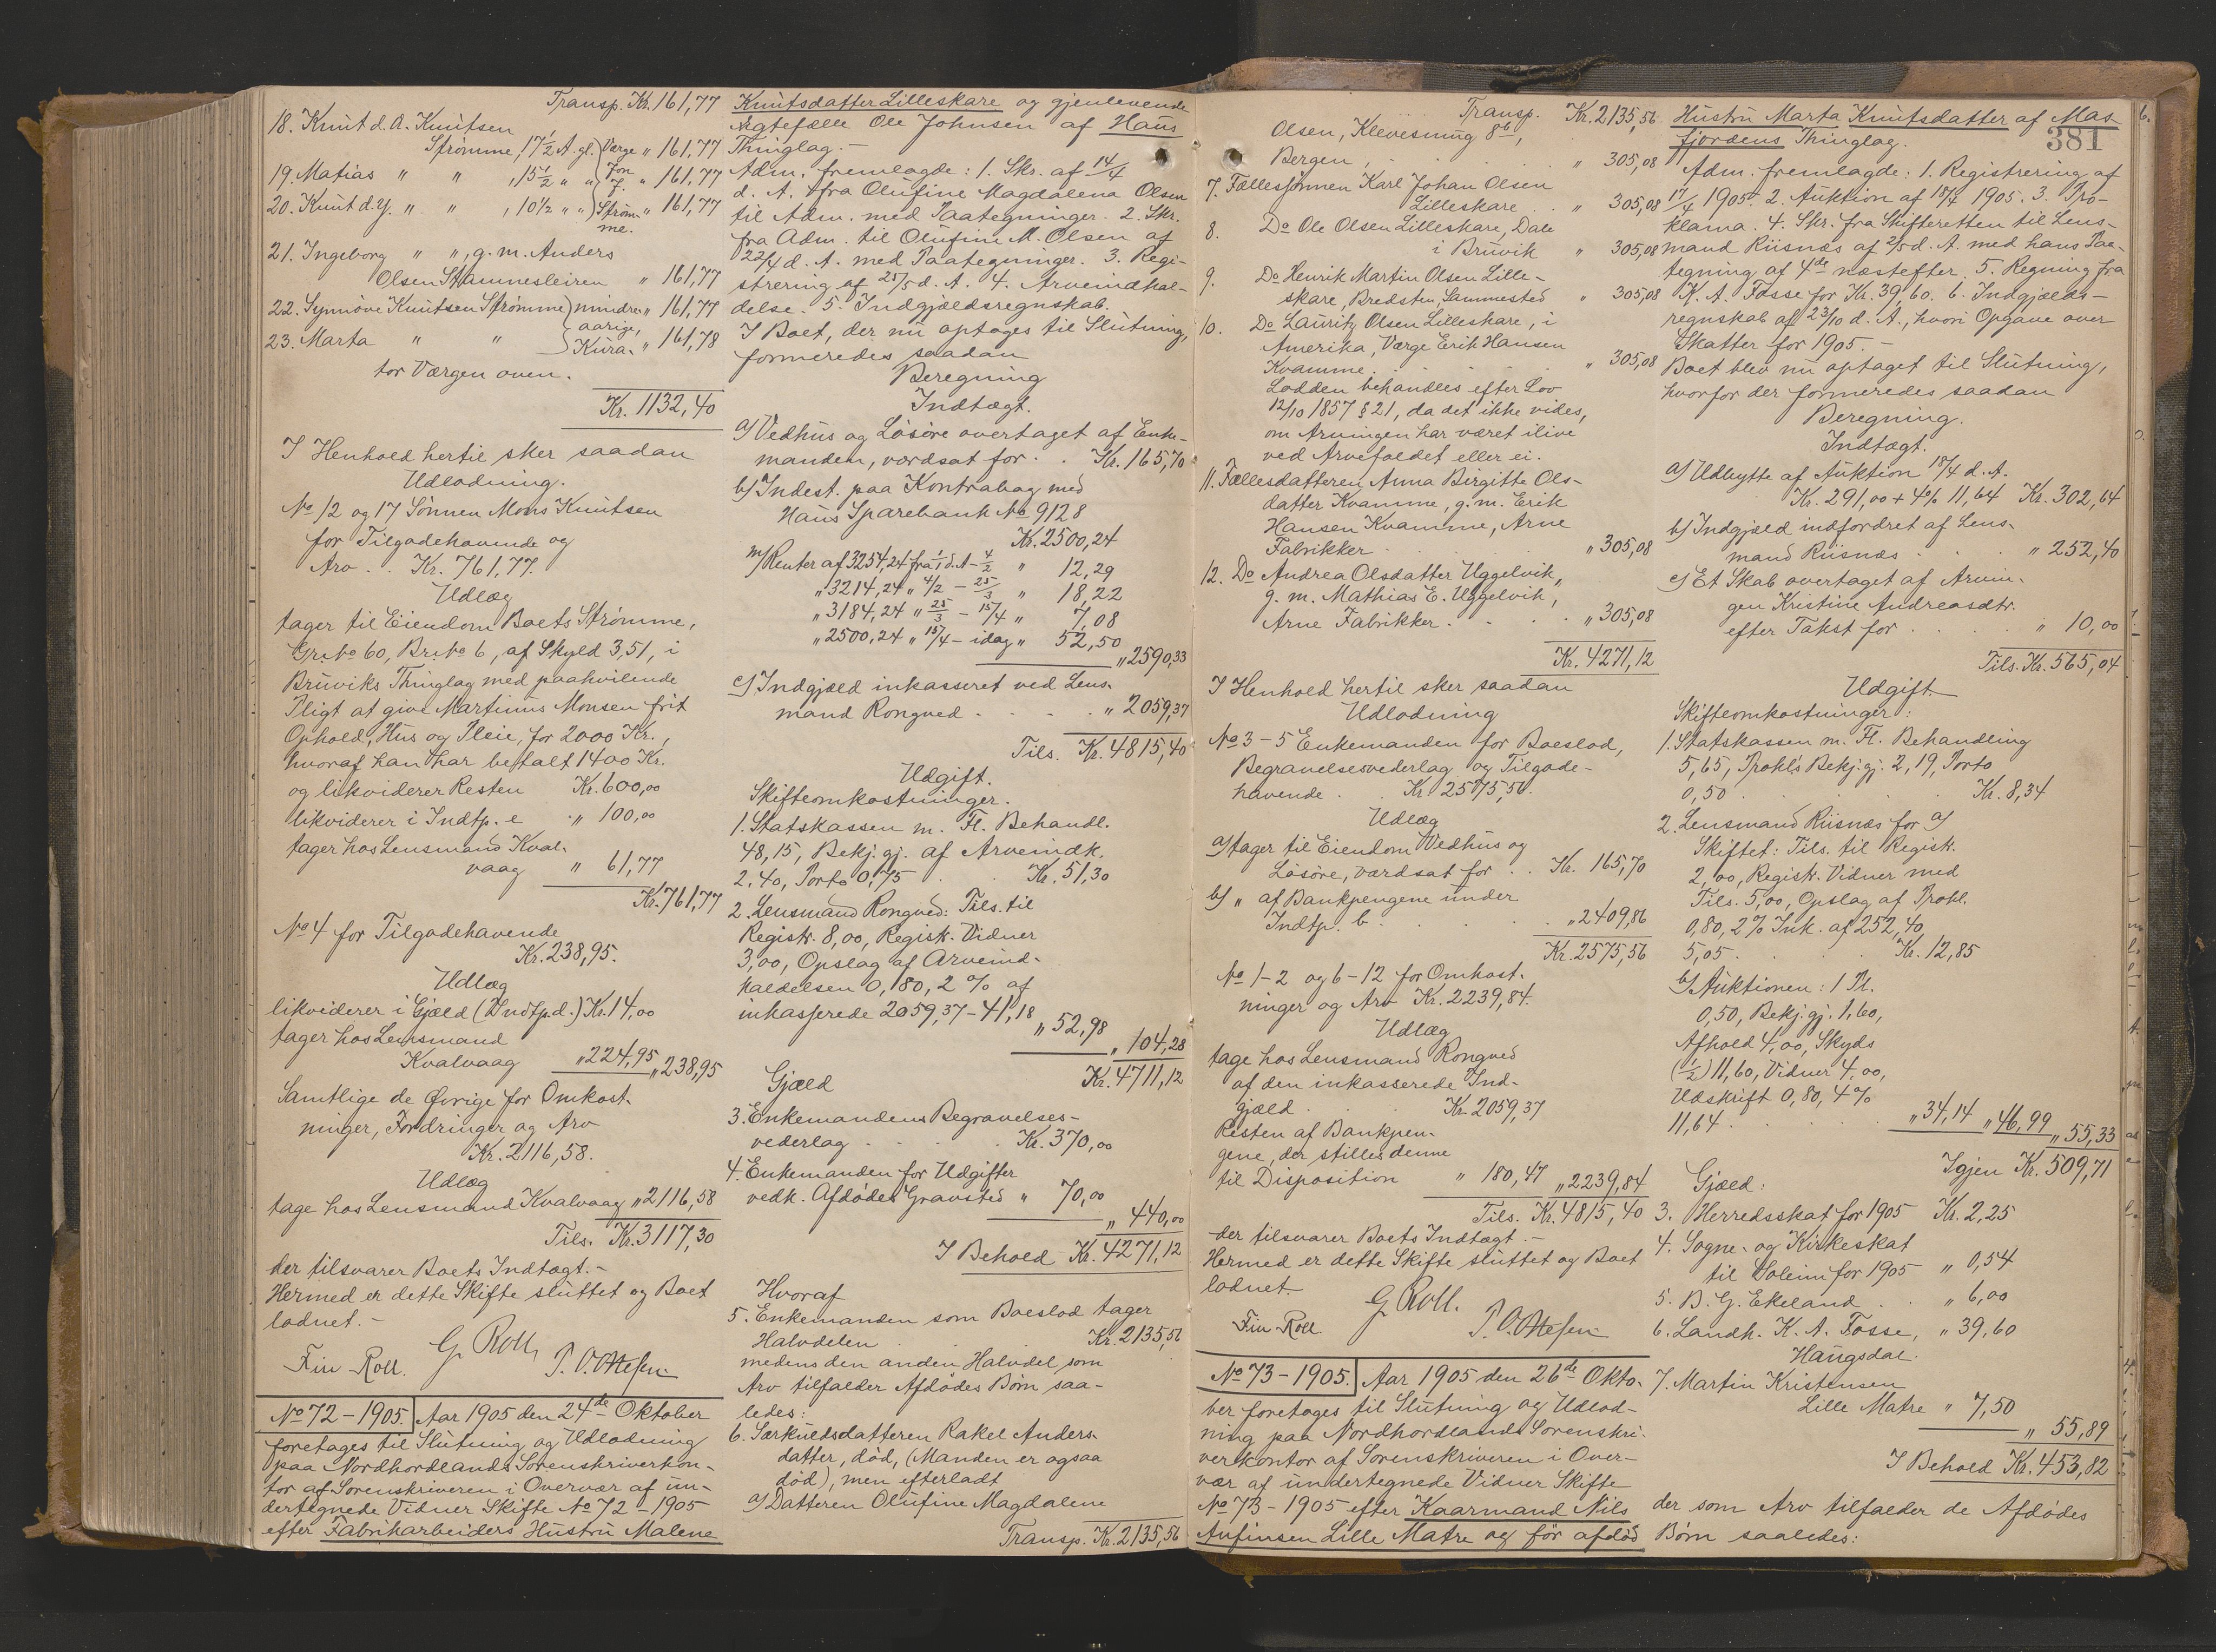 Transp. Kr. 161,77
18. Knut d. A. Knutsen
Strømme, 17½ A. gl. } Værge „ 161,77
19. Matias „ „ , 15½ „ „ } Jon J. „ 161,77
20. Knut d. Y. „ „ , 10½ „ „ } Strøm- „ 161,77
me.
21. Ingeborg „ „, g. m. Anders
Olsen Stamnesleiren „ 161,77
22. Synnöve Knutsen Strømme } mindre- „ 161,77
23. Marta „ „ } aarige, Kura- „ 161,78
tor Værgen oven.
Kr. 1132,40
I Henhold hertil sker saadan
Udlodning.
No 12 og 17 Sönnen Mons Knutsen
for Tilgodehavende og
Arv . . Kr. 761,77.
Udlæg
tager til Eiendom Boets Strømme,
Gr. No 60, Br. No 6, af Skyld 3,51, i
Bruviks Thinglag med paahvilende
Pligt at give Martinus Monsen frit
Ophold, Hus og Pleie, for 2000 Kr.,
hvoraf han har betalt 1400 Kr.
og likviderer Resten Kr. 600,00
likviderer i Indtp. e „ 100,00
tager hos Lensmand Kval-
vaag „ 61,77
Kr. 761,77
No 4 for Tilgodehavende
Kr. 238,95.
Udlæg
likviderer i Gjæld (Indtp. d.) Kr. 14,00
tager hos Lensmand
Kvalvaag „ 224,95 „ 238,95
Samtlige de Øvrige for Omkost-
ninger, Fordringer og Arv
Kr. 2116,58.
Udlæg
tage hos Lensmand Kvalvaag „ 2116,58
Tils. Kr. 3117,30
der tilsvarer Boets Indtægt. –
Hermed er dette Skifte sluttet og Boet
lodnet. –
G. Roll
Fin Roll. P. O. Ottesen
No 72 – 1905. Aar 1905 den 24de Oktober
foretages til Slutning og Udlodning
paa Nordhordlands Sorenskriverkon-
tor af Sorenskriveren i Overvær af un-
dertegnede Vidner Skifte No 72 – 1905
efter Fabrikarbeiders Hustru Malene
Knutsdatter Lilleskare og gjenlevende
Ægtefælle Ole Johnsen af Haus
Thinglag. –
Adm. fremlagde: 1. Skr. af 14/4
d. A. fra Olufine Magdalena Olsen
til Adm. med Paategninger. 2. Skr.
fra Adm. til Olufine M. Olsen af
22/4 d. A. med Paategninger. 3. Regi-
strering af 25/5 d. A. 4. Arveindkal-
delse. 5. Indgjældsregnskab.
I Boet, der nu optages til Slutning,
formeredes saadan
Beregning
Indtægt.
a) Vedhus og Løsöre overtaget af Enke-
manden, værdsat for . . Kr. 165,70
b) Indest. paa Kontrabog med
Haus Sparebank No 9128
Kr. 2500,24
m/ Renter af 3254,24 fra 1/1 d. A – 4/2 „ 12,29
„ 3214,24 „ 4/2 – 25/3 „ 18,22
„ 3184,24 „ 25/3 – 15/4 „ 7,08
„ 2500,24 „ 15/4 – idag „ 52,50
„ 2590,33
c) Indgjæld inkasseret ved Lens-
mand Rongved . . . . „ 2059,37
Tils. Kr. 4815,40
Udgift.
Skifteomkostninger.
1. Statskassen m. Fl. Behandl.
48,15, Bekj. gj. af Arveindk.
2,40, Porto 0,75 . Kr. 51,30
2. Lensmand Rongved: Tils. til
Registr. 8,00, Registr. Vidner
3,00, Opslag af Arveind-
kaldelsen 0,80, 2 % af
inkasserede 2059,37 – 41,18
„ 52,98 „ 104,28
Kr. 4711,12
Gjæld
3. Enkemandens Begravelses-
vederlag . . . . Kr. 370,00
4. Enkemanden for Udgifter
vedk. Afdödes Gravsted „ 70,00
„ 440,00
I Behold Kr. 4271,12
Hvoraf
5. Enkemanden som Boeslod tager
Halvdelen . . . Kr. 2135,56
medens den anden Halvdel som
Arv tilfalder Afdödes Børn saa-
ledes:
6. Særkuldsdatteren Rakel Anders-
datter, död, (Manden er ogsaa
död), men efterladt
a) Datteren Olufine Magdalene
Transp. Kr. 2135,56
Transp. Kr. 2135,56
Olsen, Klevesmug 8b,
Bergen, . . . . „ 305,08
7. Fællessønnen Karl Johan Olsen
Lilleskare . . „ 305,08
8. Do Ole Olsen Lilleskare, Dale
i Bruvik „ 305,08
9. Do Henrik Martin Olsen Lille-
skare, Bredsten, Sammested „ 305,08
10. Do Lauritz Olsen Lilleskare, i
Amerika, Værge Erik Hansen
Kvamme . . . . . „ 305,08
Lodden behandles efter Lov
12/10 1857 § 21, da det ikke vides,
om Arvingen har været ilive
ved Arvefaldet eller ei.
11. Fællesdatteren Anna Birgitte Ols-
datter Kvamme, g. m. Erik
Hansen Kvamme, Arne
Fabrikker . . . . „ 305,08
12. Do Andrea Olsdatter Uggelvik,
g. m. Mathias E. Uggelvik,
Arne Fabrikker . . . „ 305,08
Kr. 4271,12
I Henhold hertil sker saadan
Udlodning
No 3 – 5 Enkemanden for Boeslod,
Begravelsesvederlag og Tilgode-
havende . Kr. 2575,56.
Udlæg
a) tager til Eiendom Vedhus og
Løsöre, værdsat for . . Kr. 165,70
b) „ af Bankpengene under
Indtp. b . . . . „ 2409,86
Kr. 2575,56
No 1 – 2 og 6 – 12 for Omkost-
ninger og Arv Kr. 2239,84.
Udlæg
tage hos Lensmand Rongved
af den inkasserede Ind-
gjæld . . . Kr. 2059,37
Resten af Bankpen-
gene, der stilles denne
til Disposition „ 180,47 „ 2239,84
Tils. Kr. 4815,40
der tilsvarer Boets Indtægt. –
Hermed er dette Skifte sluttet og Boet
lodnet
G. Roll.
Fin Roll P. O. Ottesen
No 73 – 1905. Aar 1905 den 26de Okto-
ber foretages til Slutning og Udlod-
ning paa Nordhordlands Sorenskri-
verkontor af Sorenskriveren i Over-
vær af undertegnede Vidner Skifte
No 73 – 1905 efter Kaarmand Nils
Anfinsen Lille Matre og för afdöd
Hustru Marta Knutsdatter af Mas-
fjordens Thinglag.
381
Adm. fremlagde: 1. Registrering af
17/4 1905. 2. Auktion af 18/4 1905. 3. Pro-
klama. 4. Skr. fra Skifteretten til Lens-
mand Riisnæs af 2/5 d. A. med hans Paa-
tegning af 4de næstefter. 5. Regning fra
K. A. Fosse for Kr. 39,60. 6. Indgjælds-
regnskab af 23/10 d. A., hvori Opgave over
Skatter for 1905. –
Boet blev nu optaget til Slutning,
hvorfor der formeredes saadan
Beregning.
Indtægt.
a) Udbytte af Auktion 18/4 d. A.
Kr. 291,00 + 4% 11,64 Kr. 302,64
b) Indgjæld indfordret af Lens-
mand Riisnæs . . . „ 252,40
c) Et Skab overtaget af Arvin-
gen Kristine Andreasdtr.
efter Takst for . . . „ 10,00
Tils. Kr. 565,04
Udgift
Skifteomkostninger:
1. Statskassen m. Fl. Behandling
5,65, Prokl's Bekj. gj. 2,19, Porto
0,50 . . . . . Kr. 8,34
2. Lensmand Riisnæs for a)
Skiftet: Tils. til Registr.
2,00, Registr. Vidner med
Tils. 5,00, Opslag af Prokl.
0,80, 2 % Ink. af 252,40
5,05 . . . . Kr. 12,85
b) Auktionen: 1 Pl.
0,50, Bekj. gj. 1,60,
Afhold 4,00, Skyds
(½) 11,60, Vidner 4,00,
Udskrift 0,80, 4 %
11,64 . . . „ 34,14 „ 46,99 „ 55,33
Igjen Kr. 509,71
Gjæld:
3. Herredsskat for 1905 Kr. 2,25
4. Sogne- og Kirkeskat
til Soleim for 1905 „ 0,54
5. B. G. Ekeland . . „ 6,00
6. Landh. K. A. Fosse, „ 39,60
Haugsdal.
7. Martin Kristensen
Lille Matre „ 7,50
„ 55,89
I Behold Kr. 453,82
der som Arv tilfalder de Afdødes
Børn saaledes: